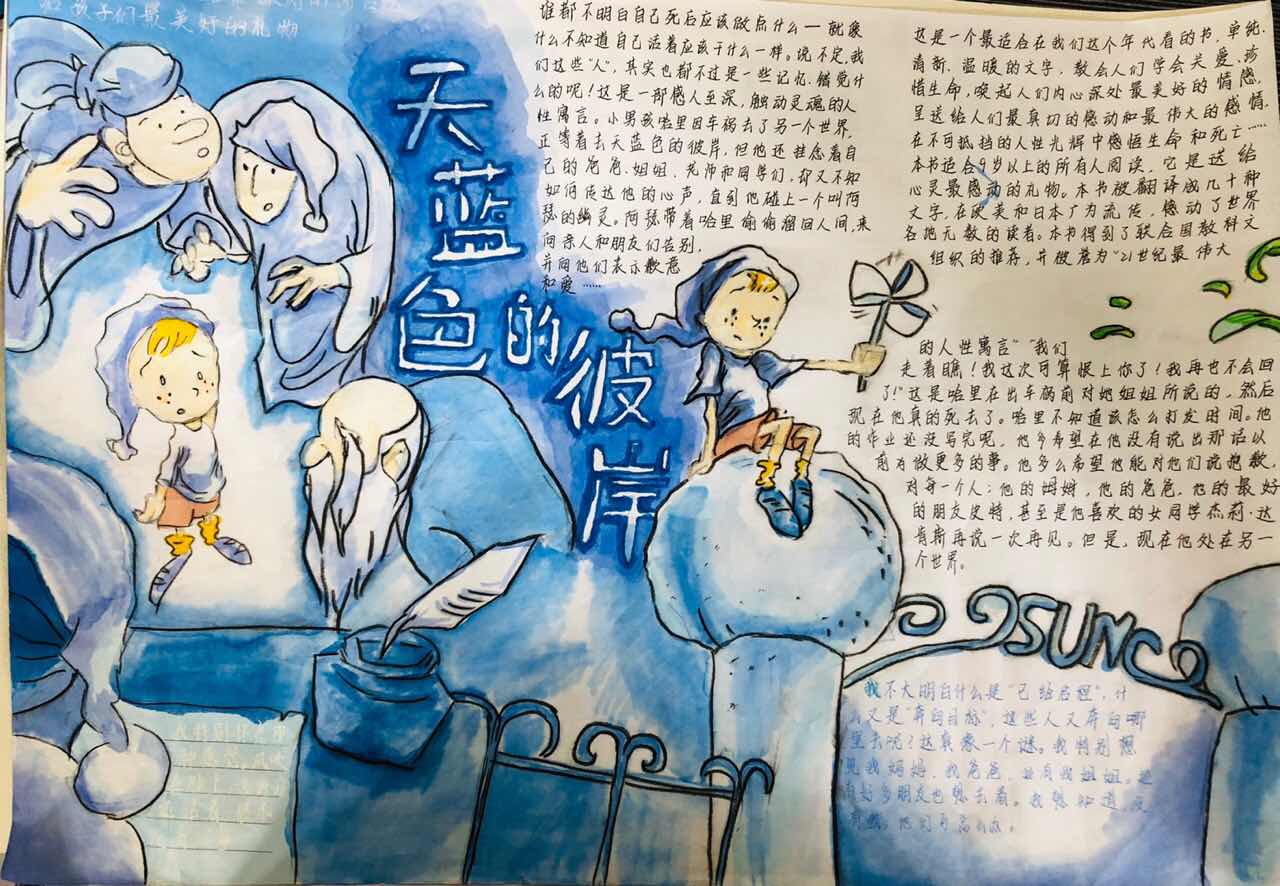 给孩子们最美好的礼物
天蓝色的彼岸
谁都不明白自己死后应该做点什么一就象
什么不知道自己活着应该干什么一样。说不定,我
们这些“人”,其实也都不过是一些记忆、错觉什
么的呢!这是一部感人至深,触动灵魂的人
性寓言。小男孩哈里因车祸去了另一个世界,
正等着去天蓝色的彼岸,但他还挂念着自
己的爸爸、姐姐、老师和同学们,却又不知
如何传达他的心声,直到他碰上一个叫阿
瑟的幽灵。阿瑟带着哈里偷偷溜回人间,来
向亲人和朋友们告别,
并向他们表示歉意
和爱……
这是一个最适合在我们这个年代看的书,单纯.
清新、温暖的文字,教会人们学会关爱、珍
惜生命,唤起人们内心深处最美好的情感,
呈送给人们最真切的感动和最伟大的感情.
在不可抵挡的人性光辉中感悟生命和死亡……
本书适合9岁以上的所有人阅读,它是送给
心灵最感动的礼物。本书被翻译成几十种
文字,在欧美和日本广为流传,感动了世界
各地无数的读者。本书得到了联合国教科文
组织的推荐,并被称为“21世纪最伟大
的人性寓言”“我们
走着瞧!我这次可算恨上你了!我再也不会回
了!”这是哈里在出车祸前对她姐姐所说的,然后
现在他真的死去了。哈里不知道该怎么打发时间。他
的作业还没写完呢,他多希望在他没有说出那话以
前为做更多的事。他多么希望他能对他们说抱歉,
对每一个人:他的姆姆,他的爸爸,他的最好
的朋友皮特,甚至是他喜欢的女同学杰莉·达
肯斯再说一次再见。但是,现在他处在另一
个世界。
SUNC
我不大明白什么是“已经启程”,什
么又是“奔向目标”,这些人又奔向哪
里去呢?这真像一个谜。我特别想
见我妈妈、我爸爸,还有我姐姐。还
有好多朋友也想去看。我想知道,没
有我,他们可怎么办。